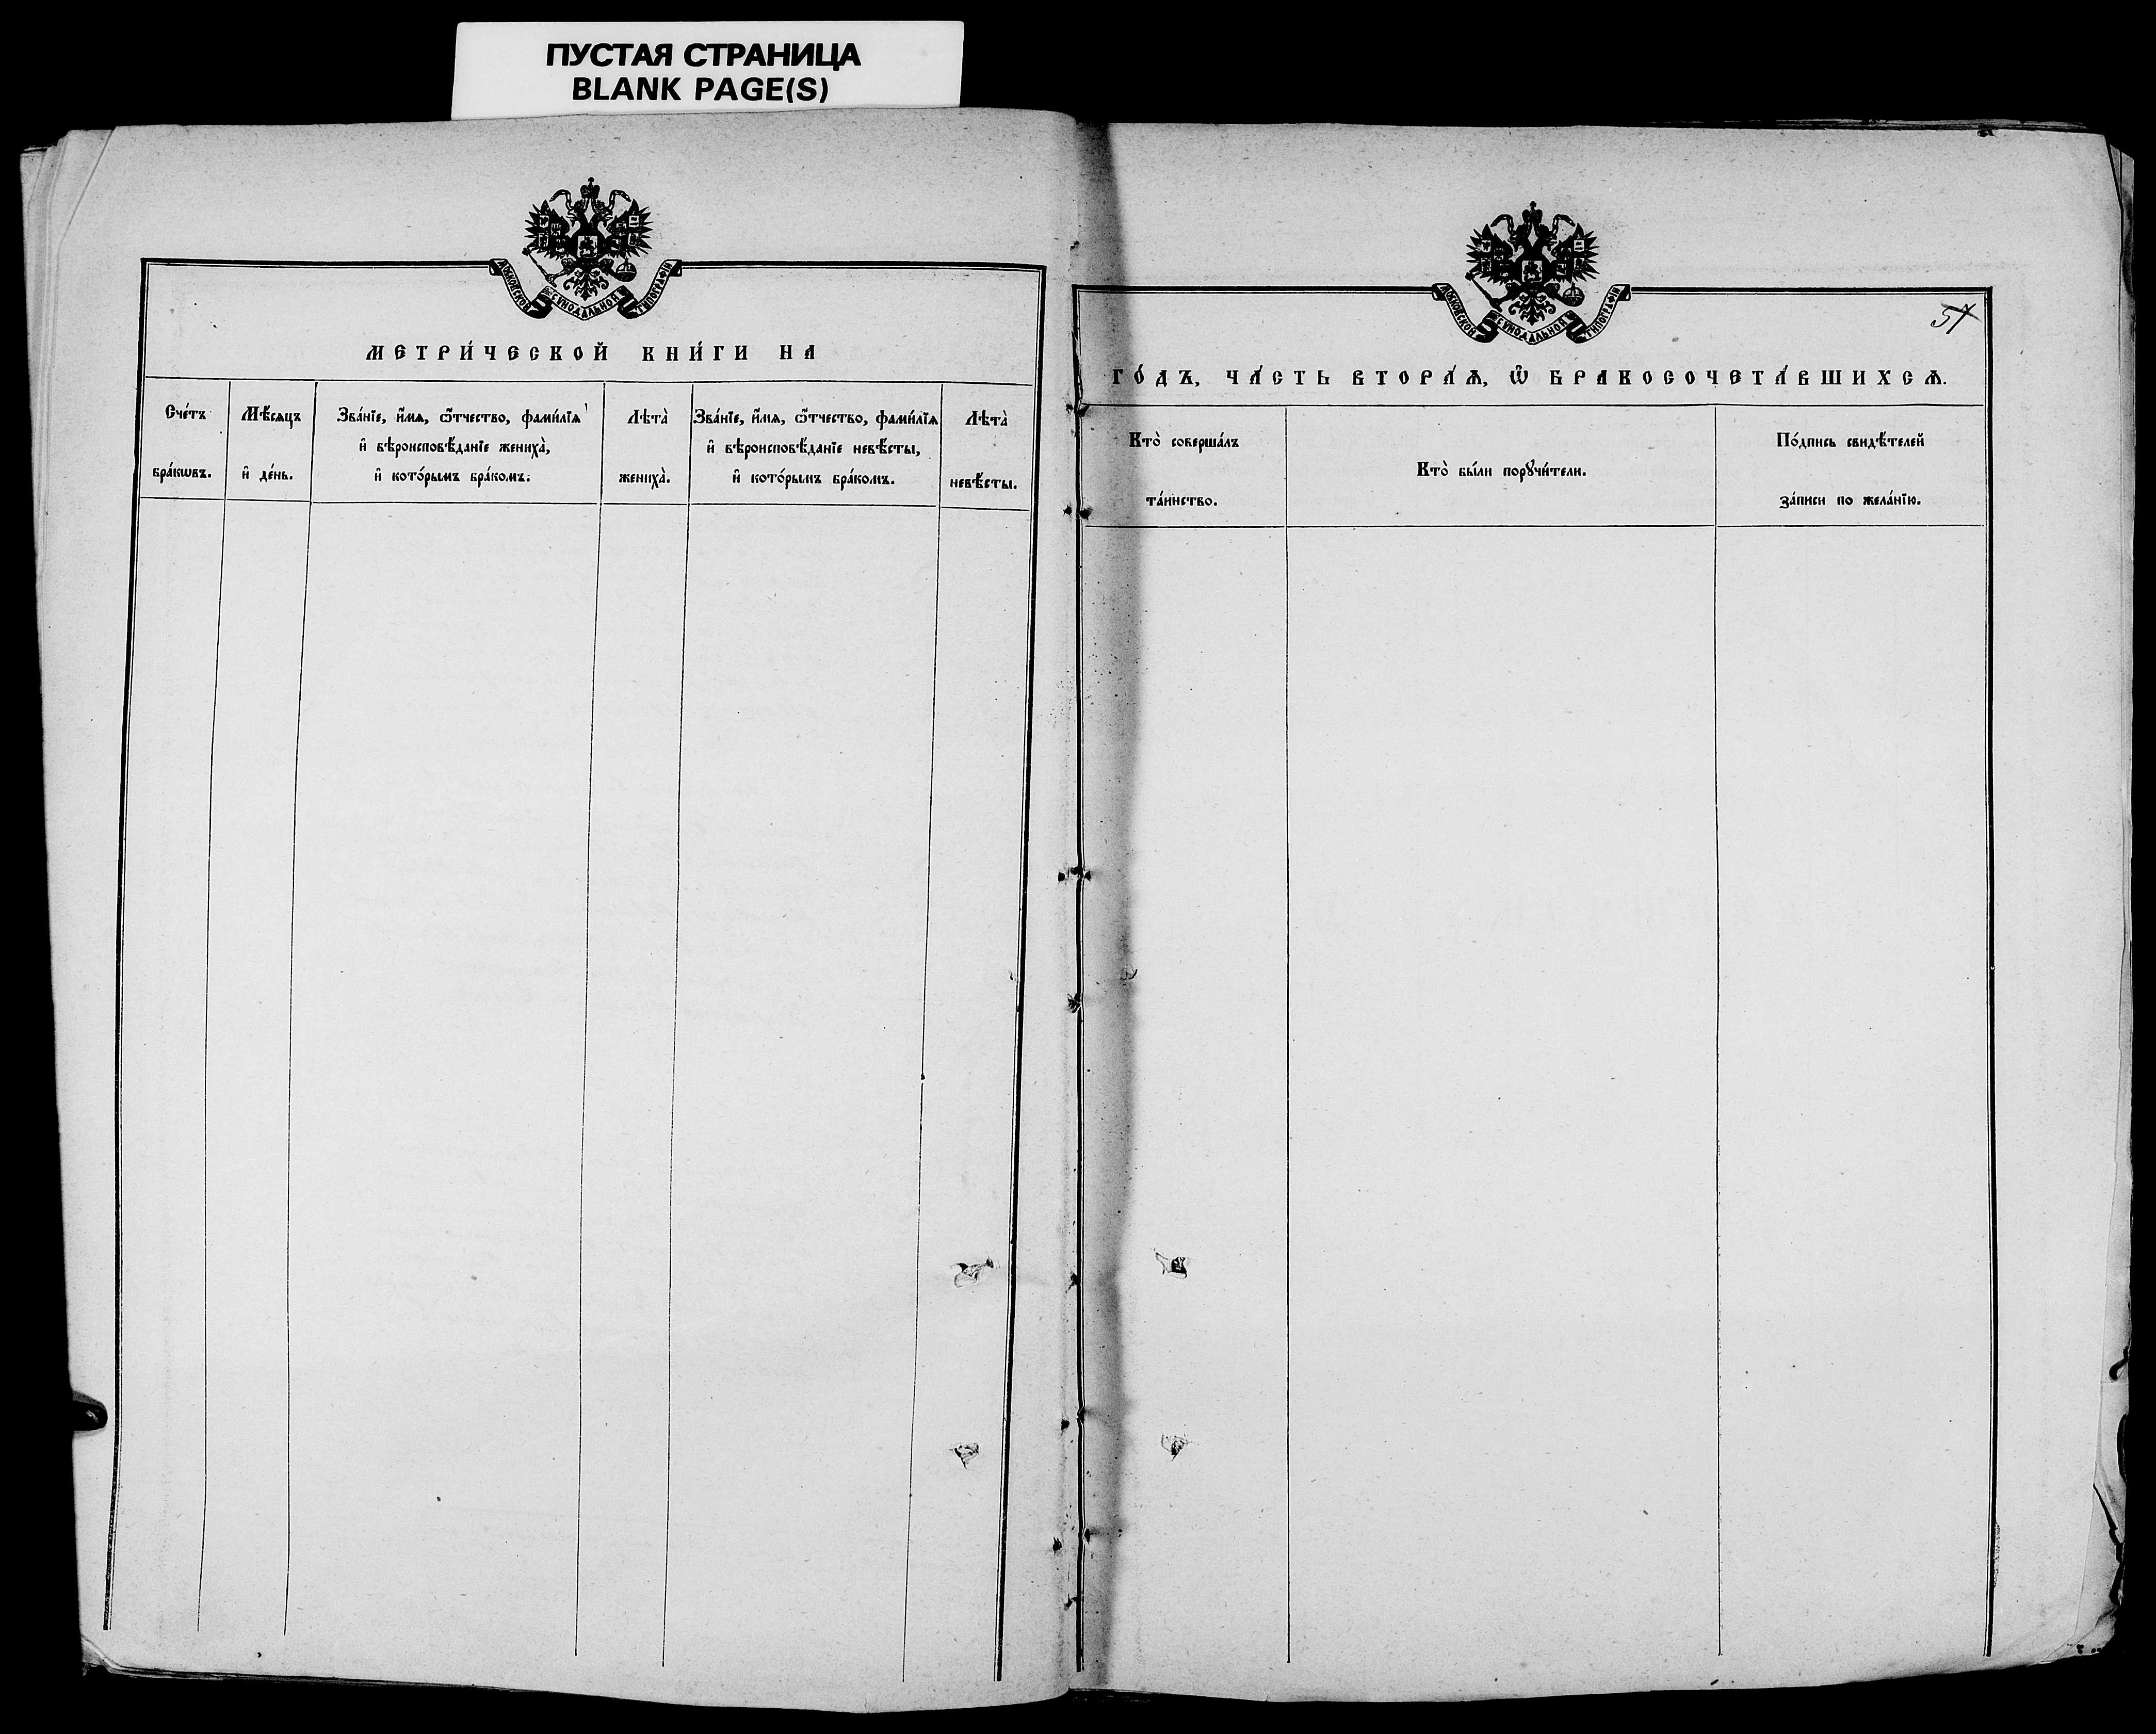 ПУСТАЯ СТРАНИЦА
BLANK PAGE(S)
МОСКОВСКОЙ СѴНОДАЛЬНОЙ ТИПОГРАФІИ
МЕТРИ́ЧЕСКОЙ КНИ́ГИ НА
Сче́тъ бра́кѡвъ.
Мѣ́сяцъ и҆ де́нь.
Зва́нїе, и҆́мя, ѻ҆́тчество, фами́лїя
и҆ вѣроисповѣ́данїе жениха̀,
и҆ кото́рымъ бра́комъ.
Лѣта̀ жениха̀.
Зва́нїе, и҆́мя, ѻ҆́тчество, фами́лїя
и҆ вѣроисповѣ́данїе невѣ́сты,
и҆ кото́рымъ бра́комъ.
Лѣта̀ невѣ́сты.
МОСКОВСКОЙ СѴНОДАЛЬНОЙ ТИПОГРАФІИ
ГО́ДЪ, ЧА́СТЬ ВТОРА́Ѧ, Ѡ҆ БРАКОСОЧЕТА́ВШИХСѦ.
Кто̀ соверша́лъ
та́инство.
Кто̀ бы́ли порꙋчи́тели.
По́дпись свидѣ́телей
за́писи по жела́нїю.